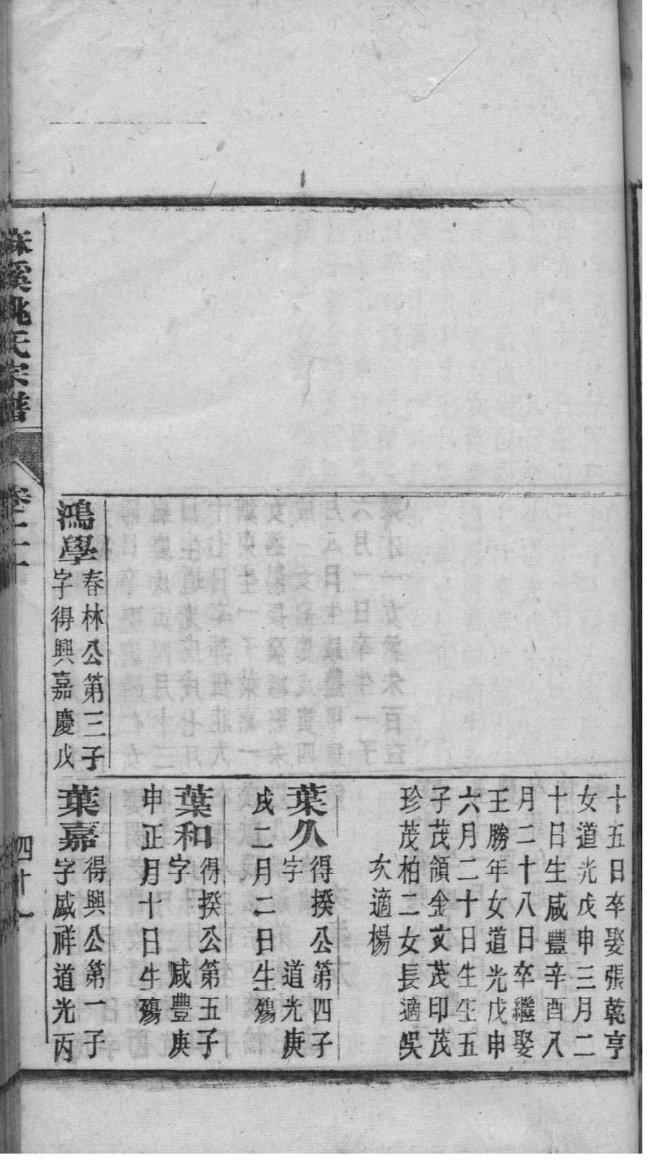 十五日卒娶張乾亨
女道光戊申三月二
十日生咸豐辛酉八
月二十八日卒繼娶
王勝年女道光戊申
六月二十日生生五
子茂領金文茂印茂
珍茂柏二女長適吳
次適楊
葉久 得揆公第四子
字 道光庚
戌二月二日生殤
葉和 得揆公第五子
字 咸豐庚
申正月十日生殤
鴻學 春林公第三子
字得興嘉慶戊
葉嘉 得興公第一子
字咸祥道光丙
麻溪姚氏宗譜
卷二十